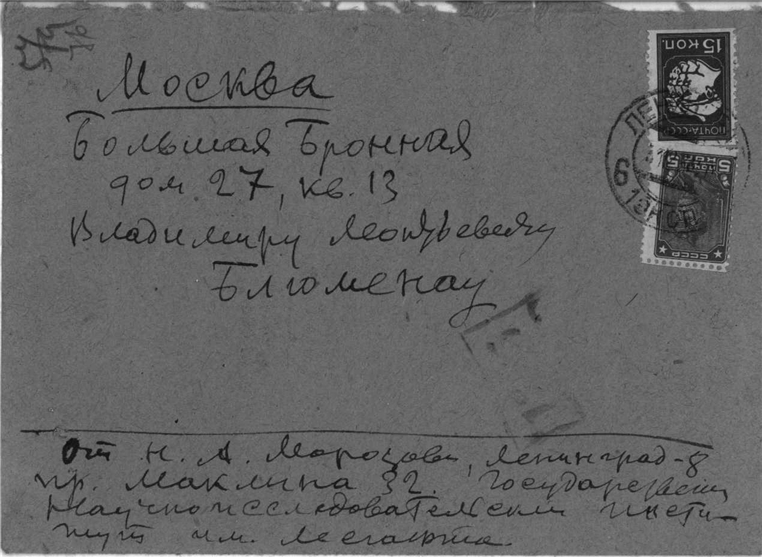 Москва
Большая Бронная
дом 27, кв. 13
Владимиру Леонтьевичу
Блюменау
15 КОП.
ПОЧТА СССР
5 КОП.
СССР
6
1 ЭКСП.
От Н. А. Морозова, Ленинград-8
пр. Маклина 32. Государствен
Научноисследовательский инсти-
тут им. Лесгафта.